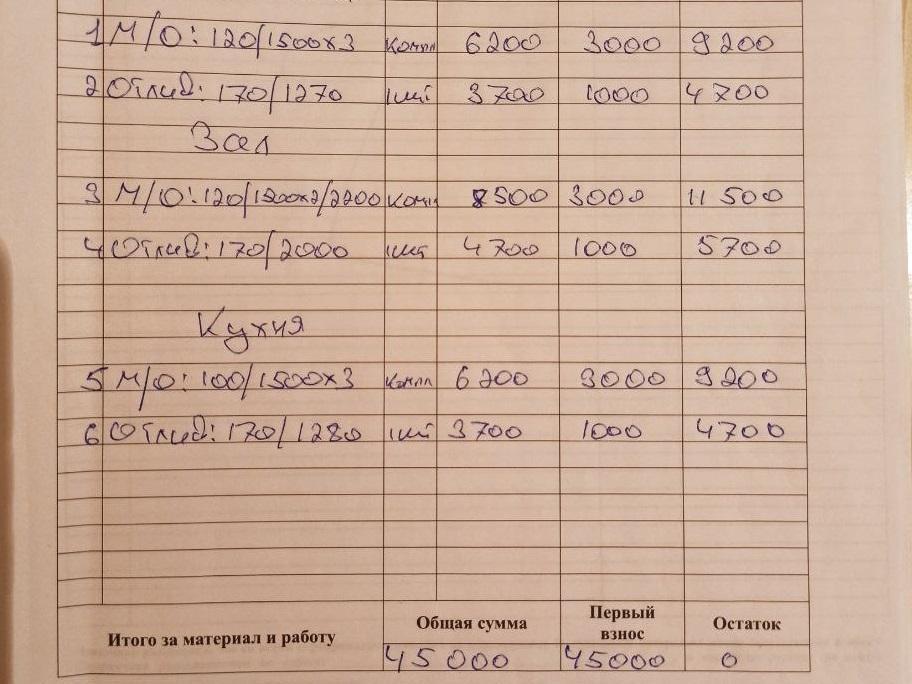 1 М/О: 120/1500х3 компл 6200 3000 9200
2 Отлив: 170/1270 1шт 3700 1000 4700
Зал
3 М/О: 120/1500х2/2200 компл 8500 3000 11 500
4 Отлив: 170/2000 1шт 4700 1000 5700
Кухня
5 М/О: 100/1500х3 компл 6200 3000 9200
6 Отлив: 170/1280 1шт 3700 1000 4700
Итого за материал и работу Общая сумма Первый взнос Остаток
45 000 45000 0